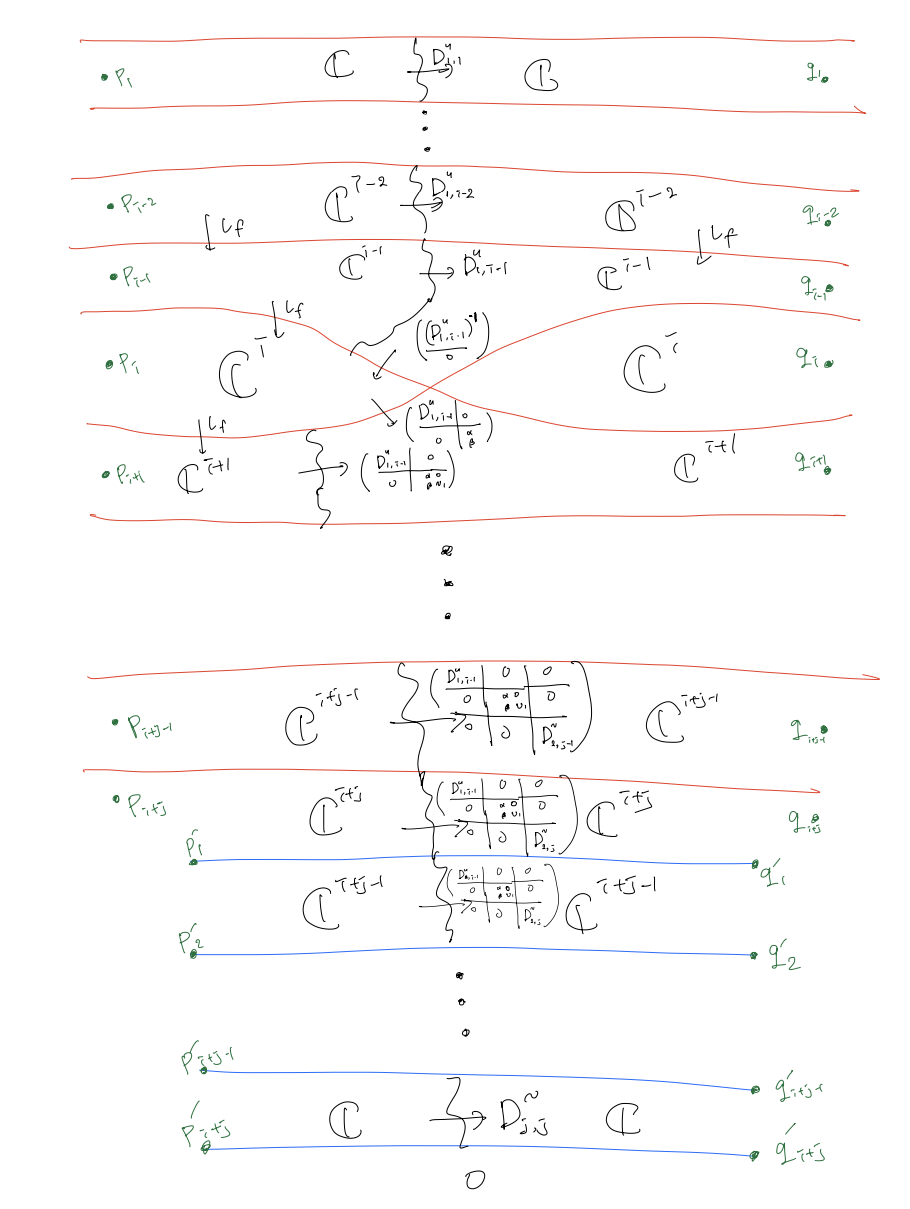 p_1 ℂ D^u_{1,1} ℂ q_1
⋮
p_{i-2} ℂ^{i-2} D^u_{1,i-2} ℂ^{i-2} q_{i-2}
↓ι_f ↓ι_f
p_{i-1} ℂ^{i-1} → D^u_{1,i-1} ℂ^{i-1} q_{i-1}
↓ι_f ((D^u_{1,i-1})^{-1} / 0)
p_i ℂ^i ℂ^i q_i
↓ι_f (D^u_{1,i-1} | 0 / 0 | α β)
p_{i+1} ℂ^{i+1} → (D^u_{1,i-1} | 0 / 0 | α 0 β v_1) ℂ^{i+1} q_{i+1}
⋮
p_{i+j-1} ℂ^{i+j-1} → (D^u_{1,i-1} | 0 | 0 / 0 | α 0 β v_1 | 0 / 0 | 0 | D^~_{2,j-1}) ℂ^{i+j-1} q_{i+j-1}
p_{i+j} ℂ^{i+j} → (D^u_{1,i-1} | 0 | 0 / 0 | α 0 β v_1 | 0 / 0 | 0 | D^~_{2,j}) ℂ^{i+j} q_{i+j}
p'_1 q'_1
ℂ^{i+j-1} → (D^u_{2,i-1} | 0 | 0 / 0 | α 0 β v_1 | 0 / 0 | 0 | D^~_{2,j}) ℂ^{i+j-1}
p'_2 q'_2
⋮
p'_{i+j-1} q'_{i+j-1}
ℂ → D^~_{j,j} ℂ
p'_{i+j} q'_{i+j}
0